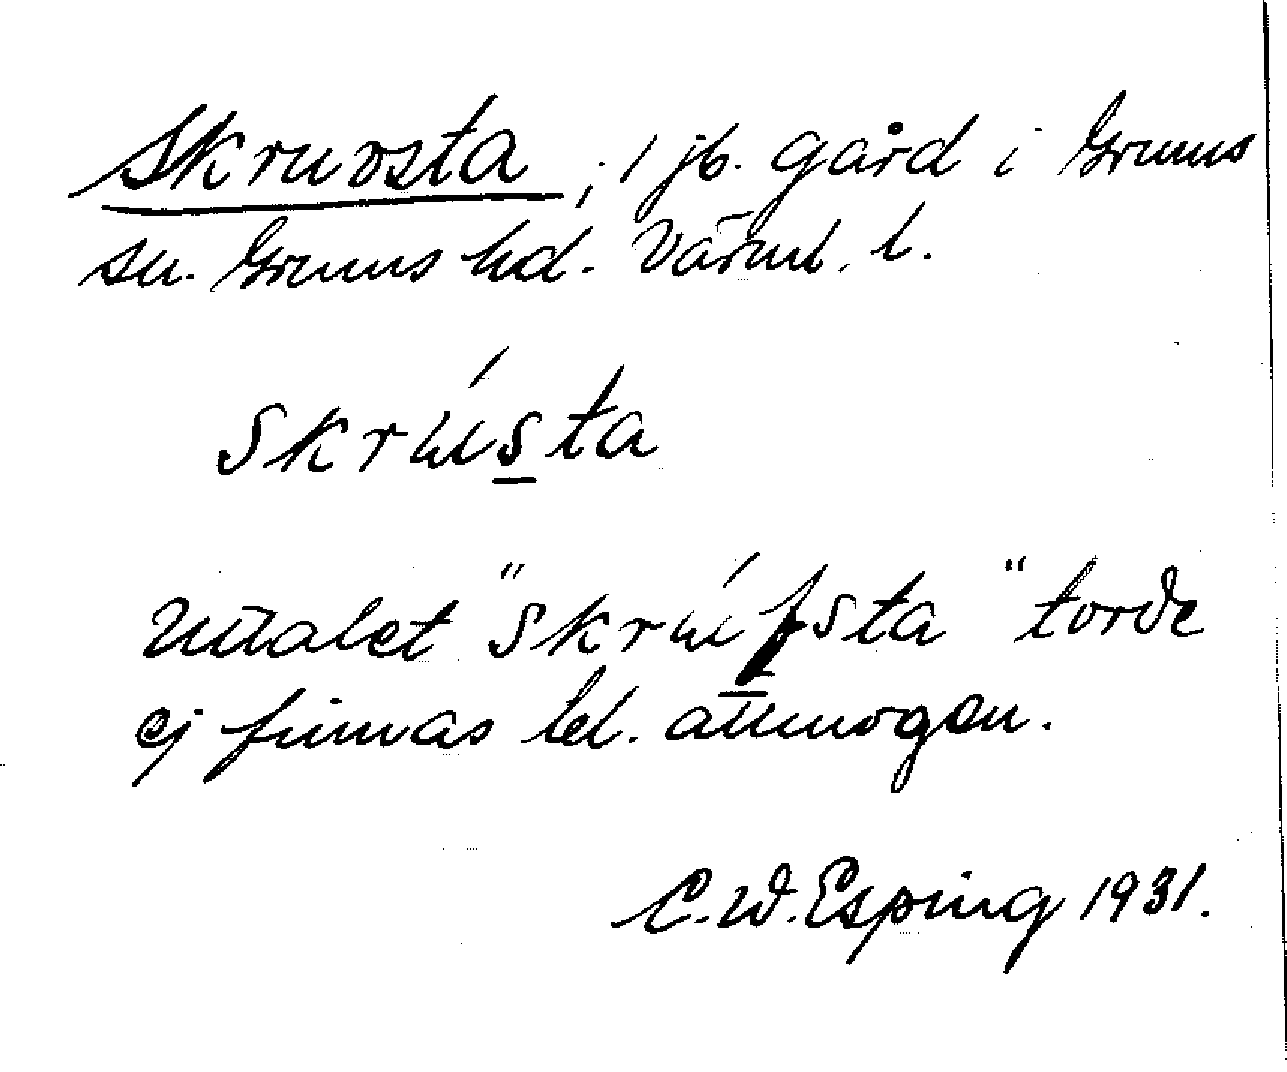 Skruvsta, 1 jb. gård i Grums
sn. Grums hd. Värml. l.
skrústa
Uttalet "skrúfsta" torde
ej finnas bl. allmogen.
C. W. Esping 1931.